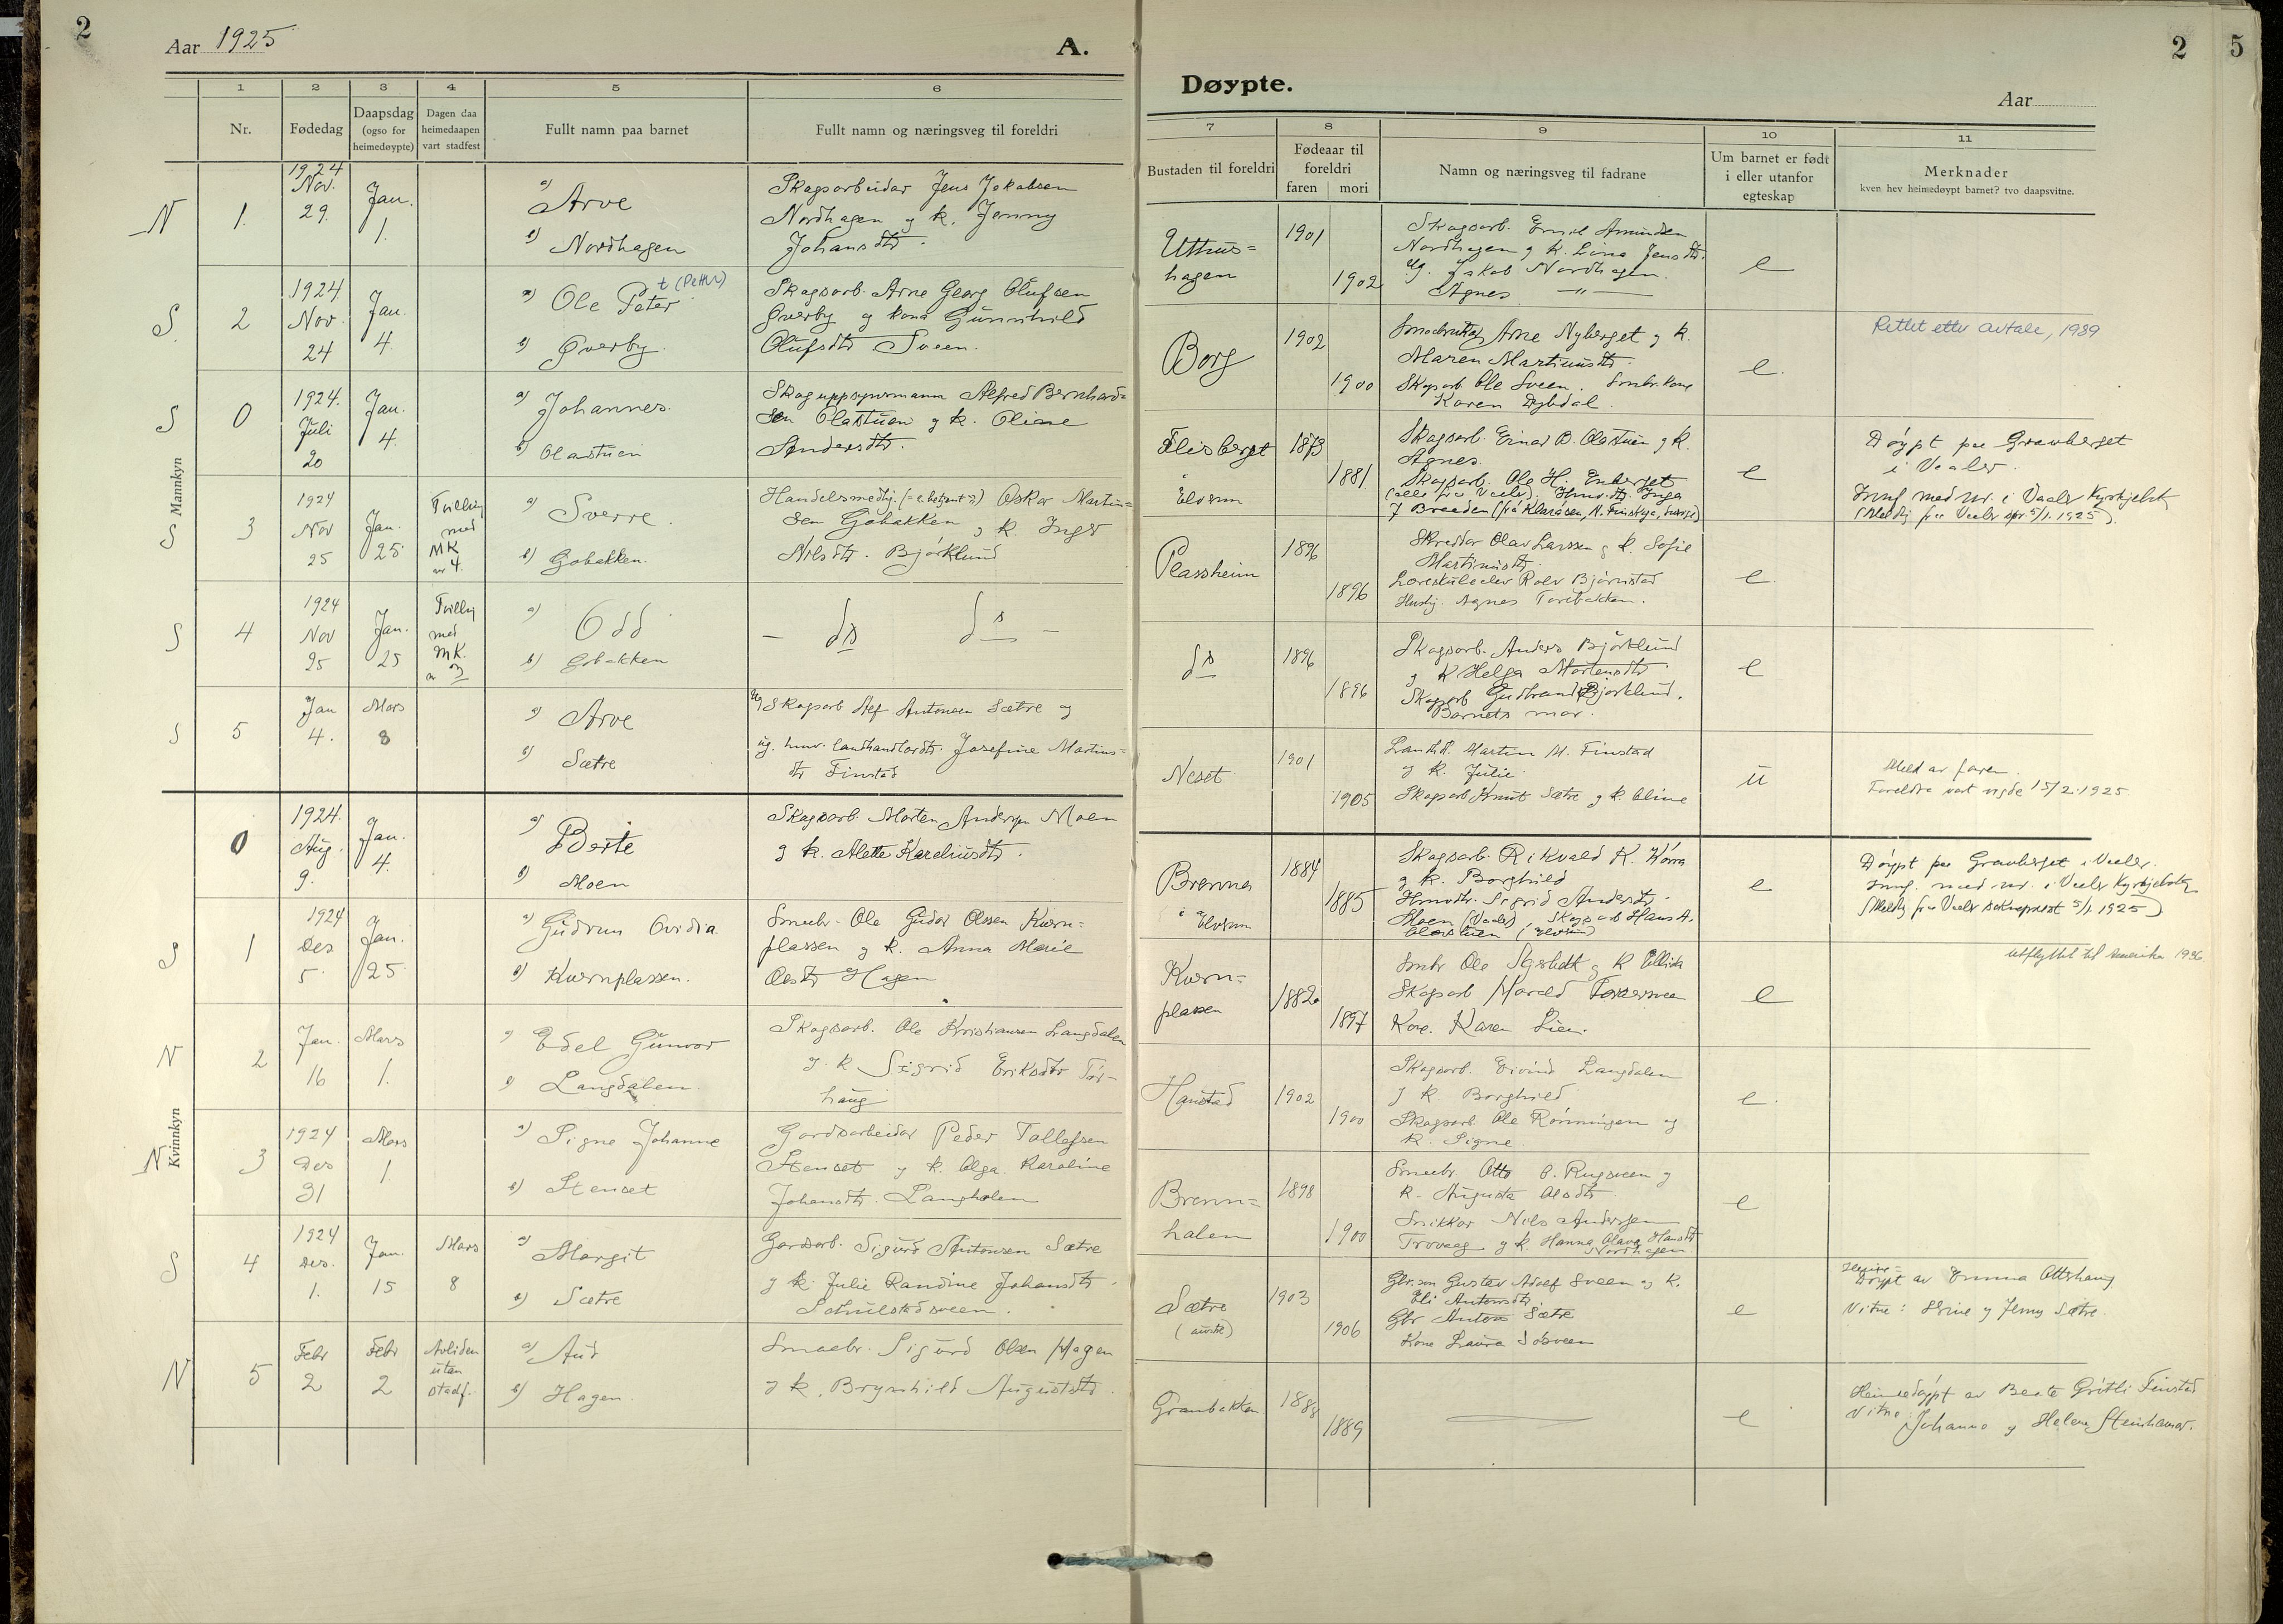 2
Aar 1925
A.
1
2
3
4
5
6
Nr.
Fødedag
Daapsdag
(ogso for
heimedøypte)
Dagen daa
heimedaapen
vart stadfest
Fullt namn paa barnet
Fullt namn og næringsveg til foreldri
Mannkyn
N
1.
1924
Nov.
29.
Jan.
1.
a) Arve
b) Nordhagen
Skagsarbeidar Jens Jakobsen
Nordhagen og k. Jenny
Johansdtr.
S.
2
1924
Nov.
24
Jan.
4.
t (Petter)
a) Ole Peter
b) Øverby.
Skagsarb. Arne Georg Olufsen
Øverby og kona Gunnhild
Olufsdtr Sveen.
S
0
1924.
Juli
20
Jan.
4.
a) Johannes.
b) Olastuen
Alfred Bernhard=
sen Olastuen g k. Oliane
Andersdtr.
S
3
1924
Nov
25
Jan.
25
Tvilling
med
MK
nr 4.
a) Sverre.
b) Gobakken.
Oskar Martin=
sen Gobakken g k. Inger
Nilsdtr. Bjørklund
S
4
1924
Nov
25
Jan.
25
Tvilling
med
MK.
nr 3
a) Odd
b) Gobakken
— ds ds —
S
5
Jan
4.
Mars
8
a) Arve
b) Sætre
Skagsarb Alf Antonsen Sætre og
ug. Josefine Martins=
dtr Finstad
Kvinnkyn
0
1924.
Aug.
9.
Jan.
4.
a) Berte
b) Moen
Skagsarb. Morten Andersen Moen
g k. Mette Kareliusdtr.
S
1
1924
Des
5.
Jan.
25
a) Gudrun Ovidia
b) Kværnplassen.
Smaabr. Ole Gudar Olsen Kværn=
plassen g k. Anna Marie
Olsdtr Hagen
N
2
Jan.
16
Mars
1.
a) Edel Gunvor
b) Langdalen.
Skagsarb. Ole Kristiansen Langdalen
g k Sigrid Eriksdtr Tør-
haug
N
3
1924
Des
31
Mars
1
a) Signe Johanne
b) Stenset
Gardsarbeidar Peder Tollefsen
Stenset g k. Olga Karoline
Johansdtr. Langholen
S
4
1924
Des.
1.
Jan.
15
Mars
8
a) Margit
b) Sætre
Gardsarb. Sigurd Antonsen Sætre
g k. Julie Randine Johansdtr.
N
5
Febr
2
Febr
2
Avliden
utan
stadf.
a) Aud
b) Hagen.
Smaabr. Sigurd Olsen Hagen
g k. Brynhild Augustsdtr.
2
5
Døypte.
Aar
7
8
9
10
11
Bustaden til foreldri
Fødeaar til
foreldri
faren
mori
Namn og næringsveg til fadrane
Um barnet er født
i eller utanfor
egteskap
Merknader
kven hev heimedøypt barnet? tvo daapsvitne.
Uthus=
hagen
1901
1902
Skagsarb. Emil Amundsen
Nordhagen g k. Lina Jensdtr.
Ug. Jakob Nordhagen.
Agnes —"—
e
Borg
1902
1900
Arne Nyberget g k.
Maren Martinusdtr.
Skagsarb. Ole Sveen.
Karen Dybdal.
e.
Rettet etter avtale, 1989
Flisberget
i
Elverum
1873
1881
Skagsarb. Einar B. Olastuen g k.
Agnes.
Skagsarb. Ole H. Enberget
e
Døypt paa Gravberget
i Vaaler.
Innf med nr. i Vaaler Kyrkjebok
Plassheim
1896
1896
Skreddar Olav Larssen g k. Sofie
Martinusdtr.
Læreskuleelev Rolv Bjørnstad
Agnes
e.
ds
1896
1896
Skagsarb. Anders Bjørklund
g k Helga Mortensdtr
Skagsarb Gudbrand Bjørklund.
Barnets mor.
e
Neset
1901
1905
Landh. Martin M. Finstad
g k. Julie.
Skagsarb Knut Sætre g k. Oline
u
Meld av faren.
Foreldra vart vigde 15/2.1925
Brenna
i
Elverum
1884
1885
Skagsarb. Rikvald K.
g k. Borghild
Sigrid Andersdtr.
Moen (Vaaler), Skagsarb Hans A.
Olastuen (Elverum)
e
Døypt paa Gravberget i Vaaler.
Innf. med nr. i Vaaler Kyrkjebok
(Melding fraa Vaaler sokneprest 5/1. 1925)
Kværn=
plassen
1882
1897
Smbr Ole
Skagsarb Harald
Kone. Karen Lien.
e
utflyttet til Amerika 1936
Hanstad
1902
1900
Skagsarb. Eivind Langdalen
g k Borghild
Skagsarb Ole Rønningen og
k. Signe.
e.
Brenn=
halen
1898
1900
Smaabr. Otto O. Rugsveen g
k. Augusta Olsdtr.
Snikkar Nils Andersen
g k. Hanna Olava Hansdtr
Nordhagen
e
Sætre
(austre)
1903
1906
Gbr.son Gustav Adolf Sveen g k.
Eli Antonsdtr.
Gbr Anton Sætre
Kone Laura
e
Heime=
Døypt av Emma Ottshaug
Vitne: Stine g Jenny Sætre
Granbakken
1888
1889
e
Heimedøypt av Beate Gritli Finstad
Vitne: Johanna g Helena Steinhamar.